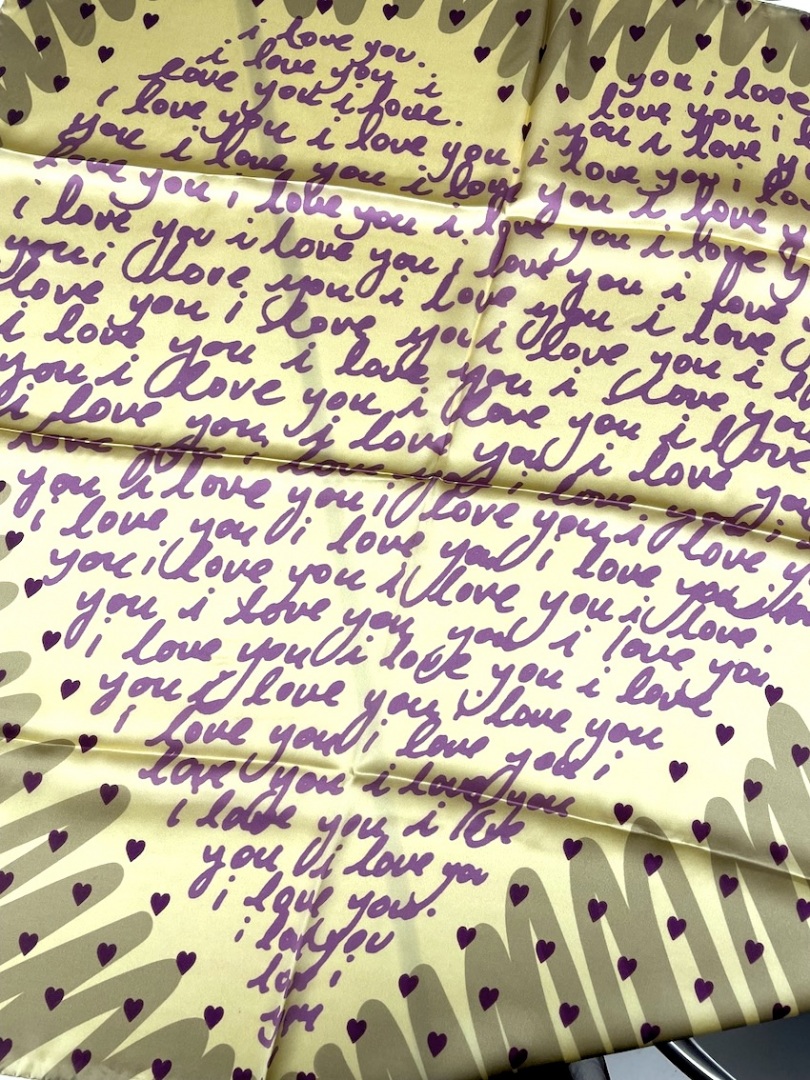 i love you.
i love you i
love you i love.
you i love
i love you i love you i love you i
you i love you i love you i
love you i love you i love you i love y
i love you i love you i love you i love
you i love you i love you i love
love you i love you i love you i
i love you i love you i love you
you i love you i love you i love
i love you i love you i love you
love you i love you i love you i
you i love you i love you i love y
i love you i love you i love you
you i love you i love you i love.
you i love you you i love you
i love you i love you i love
you i love you i love you
i love you i love you i
love you i love you
i love you i love
you i love you
i love you.
i love you
love i
you